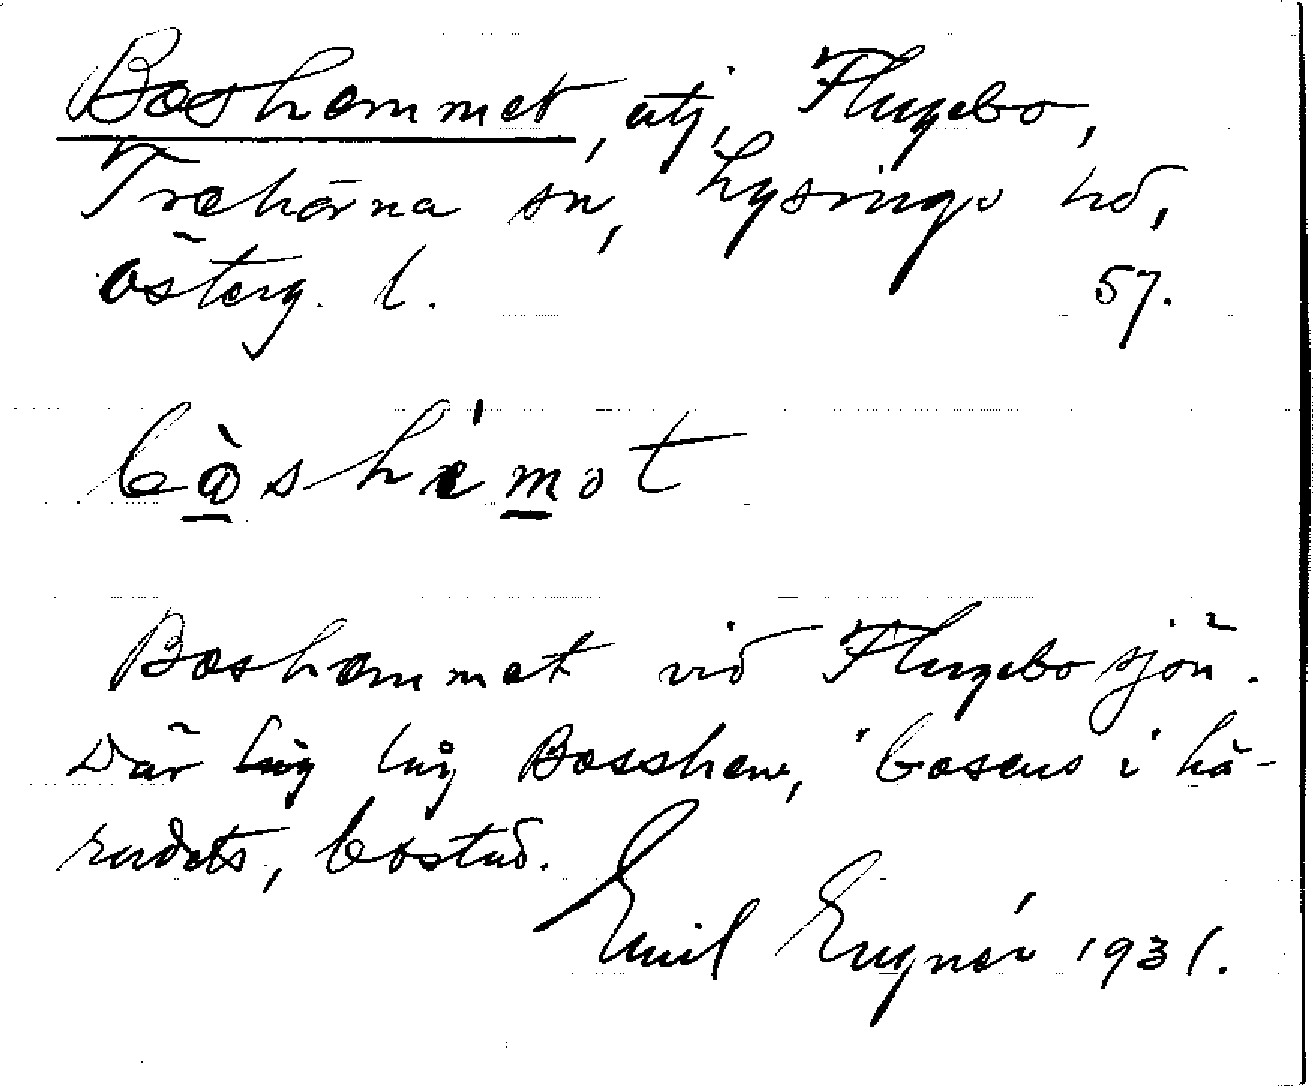 Boshemmet, utj, Flugebo,
Trehörna sn, Lysings hd,
Österg. l. 57.
bòshémot
Boshemmet vid Flugebosjön.
Där låg Bosshens, "basens i hä-
radets, bostad.
Emil Eugnér 1931.